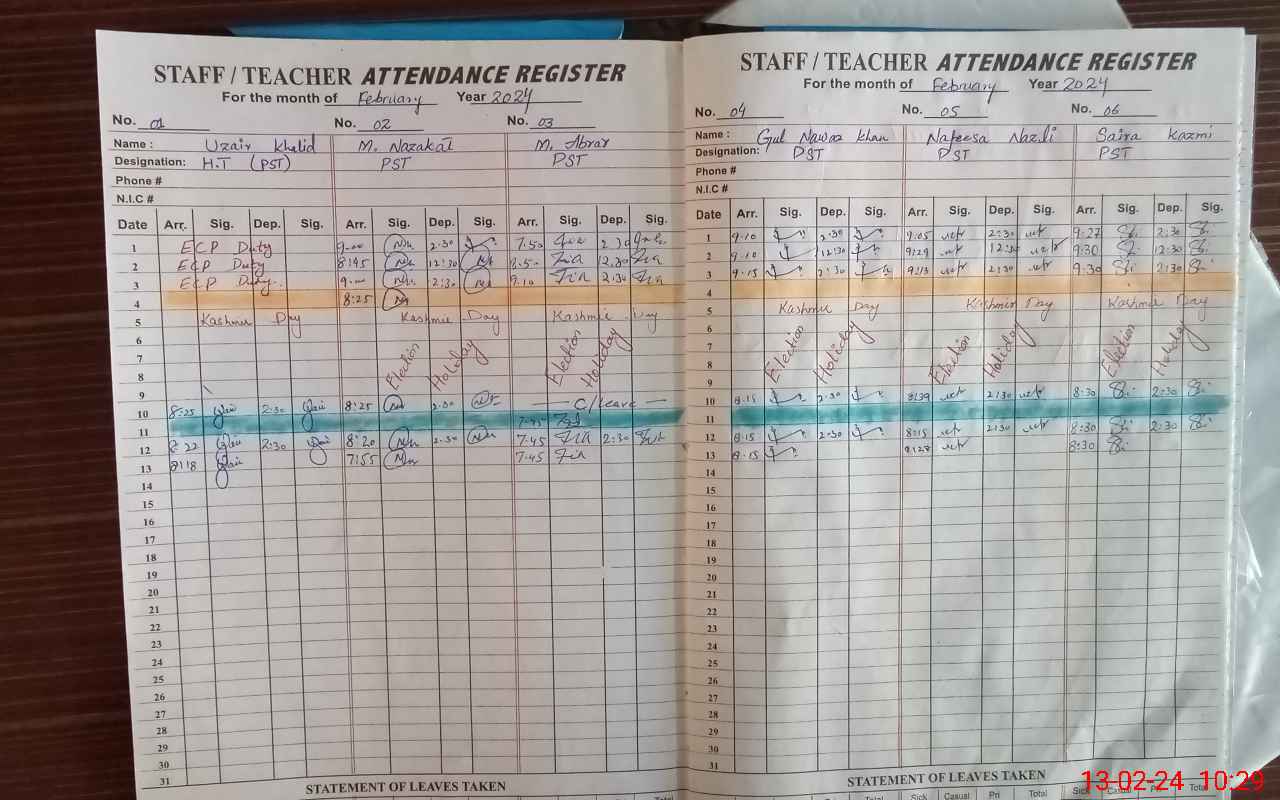 STAFF / TEACHER ATTENDANCE REGISTER
For the month of February Year 2024
No. 01 No. 02 No. 03
Name : Uzair Khalid M. Nazakat M. Abrar
Designation: H.T (PST) PST PST
Phone #
N.I.C #
Date Arr. Sig. Dep. Sig. Arr. Sig. Dep. Sig. Arr. Sig. Dep. Sig.
1 ECP Duty 9-00 2:30 7.50
2 ECP Duty 8:45 12:30
3 ECP Duty 9-00 2:30 9-10 2:30
4 8:25
5 Kashmir Day Kashmir Day Kashmir Day
6
7 Election Holiday Election Holiday
8
9
10 8:25 2:30 8:25 2:30 C/leave
11 7:45
12 8:22 2:30 8:20 2:30 7.45 2:30
13 8:18 7:55 7.45
14
15
16
17
18
19
20
21
22
23
24
25
26
27
28
29
30
31
STATEMENT OF LEAVES TAKEN
STAFF / TEACHER ATTENDANCE REGISTER
For the month of February Year 2024
No. 04 No. 05 No. 06
Name : Gul Nawaz Khan Nafeesa Nazli Saira Kazmi
Designation: PST PST PST
Phone #
N.I.C #
Date Arr. Sig. Dep. Sig. Arr. Sig. Dep. Sig. Arr. Sig. Dep. Sig.
1 9-10 2:30 9:05 2:30 9:27 2:30
2 9-10 12:30 9:29 9:30 12:30
3 9-15 2:30 9:13 2:30 9:30 2:30
4
5 Kashmir Day Kashmir Day Kashmir Day
6
7 Election Holiday Election Holiday Election Holiday
8
9
10 8.15 2:30 8:39 2:30 8:30 2:30
11
12 8:15 2:30 8:15 2:30 8:30 2:30
13 8-15 8:30
14
15
16
17
18
19
20
21
22
23
24
25
26
27
28
29
30
31
STATEMENT OF LEAVES TAKEN
Sick Casual Pri Total Sick Casual Pri Total
13-02-24 10:29